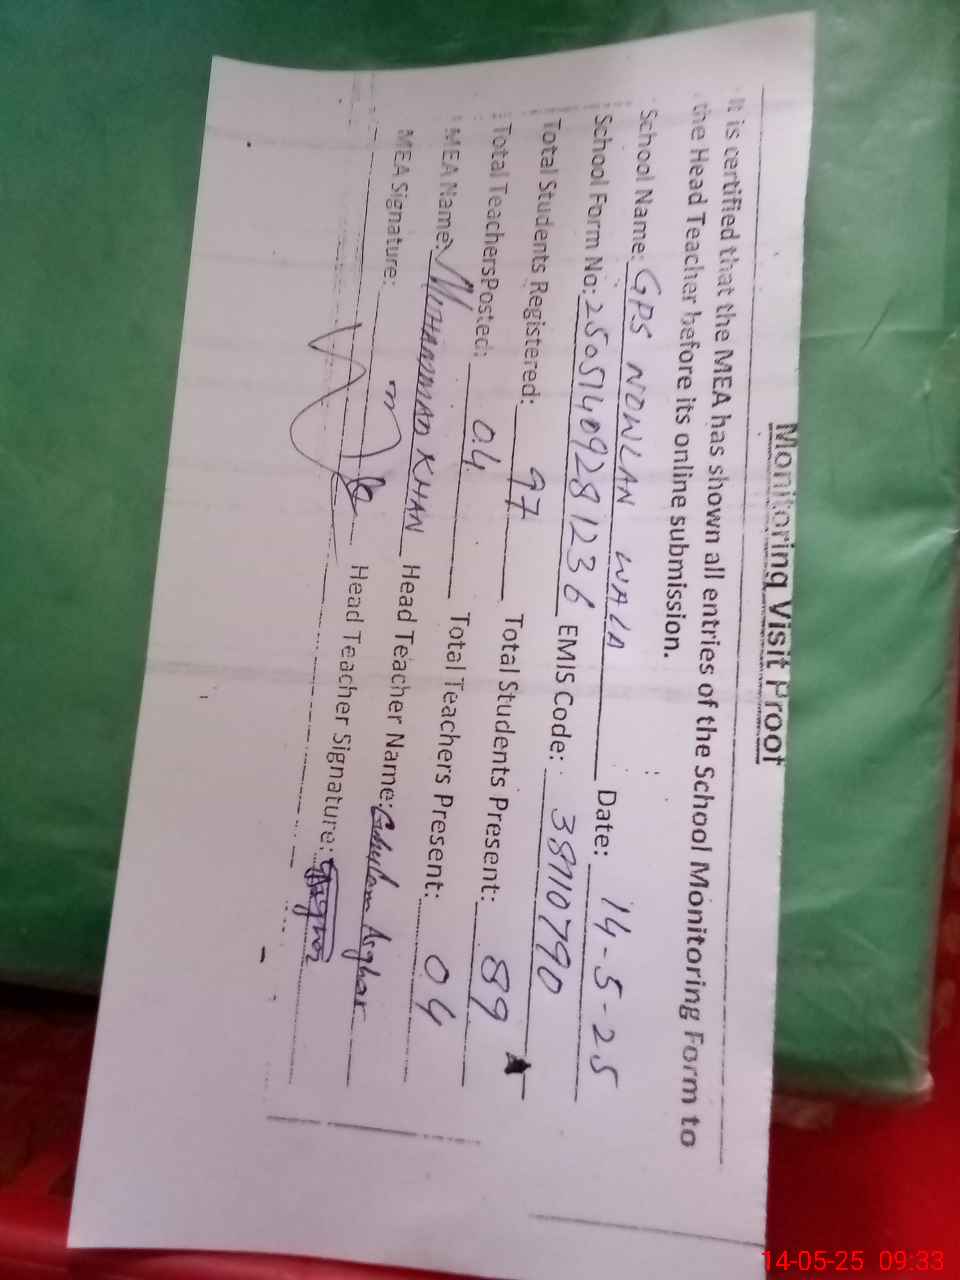 Monitoring Visit Proof
It is certified that the MEA has shown all entries of the School Monitoring Form to
the Head Teacher before its online submission.
School Name: GPS NOWLAN WALA Date: 14-5-25
School Form No: 2505140928 1236 EMIS Code: 38110790
Total Students Registered: 97 Total Students Present: 89
Total Teachers Posted: 04 Total Teachers Present: 04
MEA Name: MUHAMMAD KHAN Head Teacher Name: Ghulam Asghar
MEA Signature: Head Teacher Signature:
14-05-25 09:33